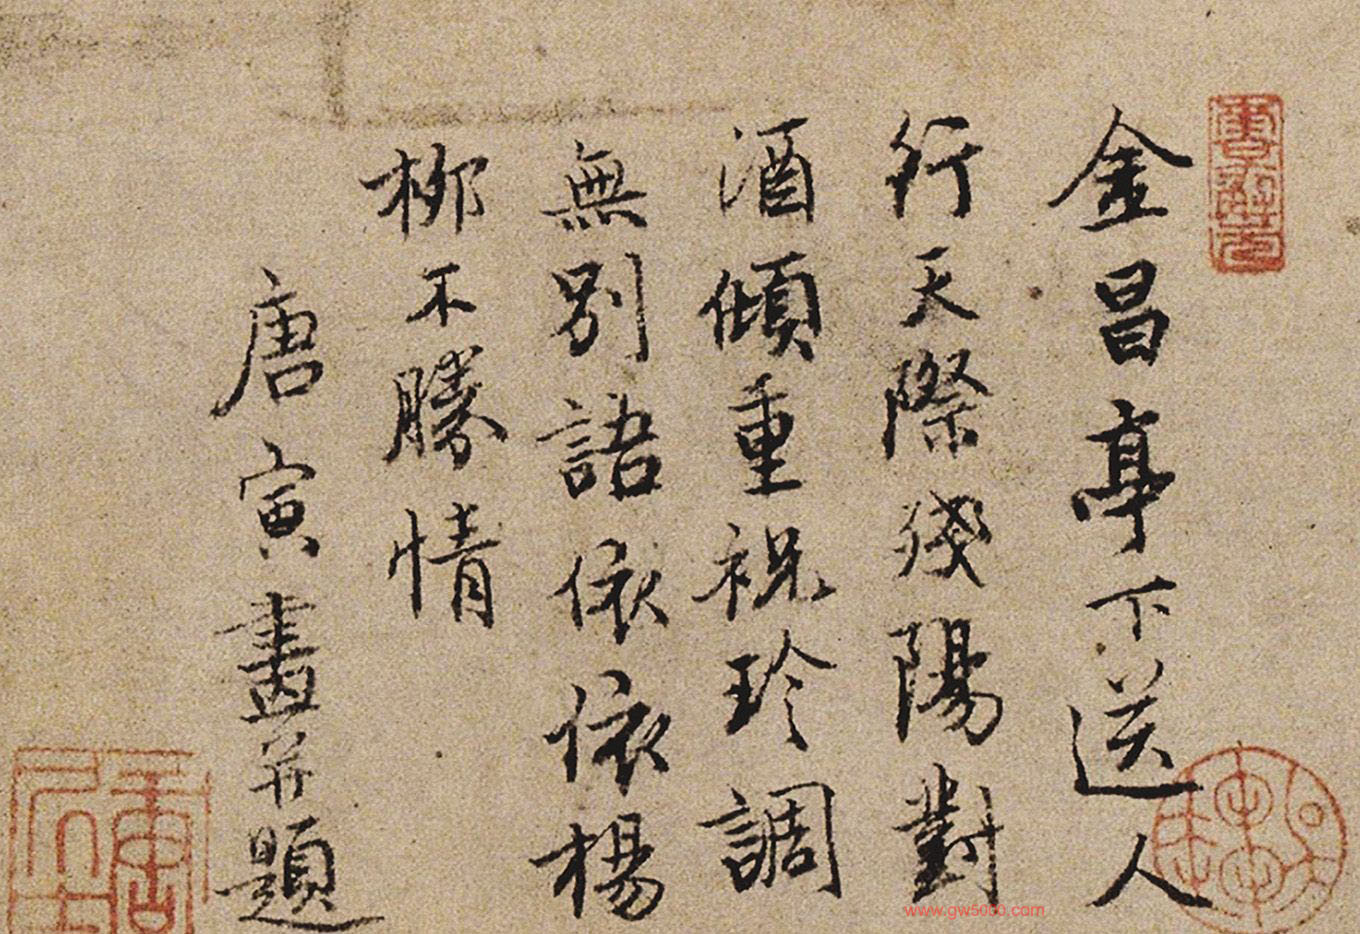 金昌亭下送人
行天際殘陽對
酒傾重祝珍調
無別語依依楊
柳不勝情
唐寅畫并題
www.gw5050.com